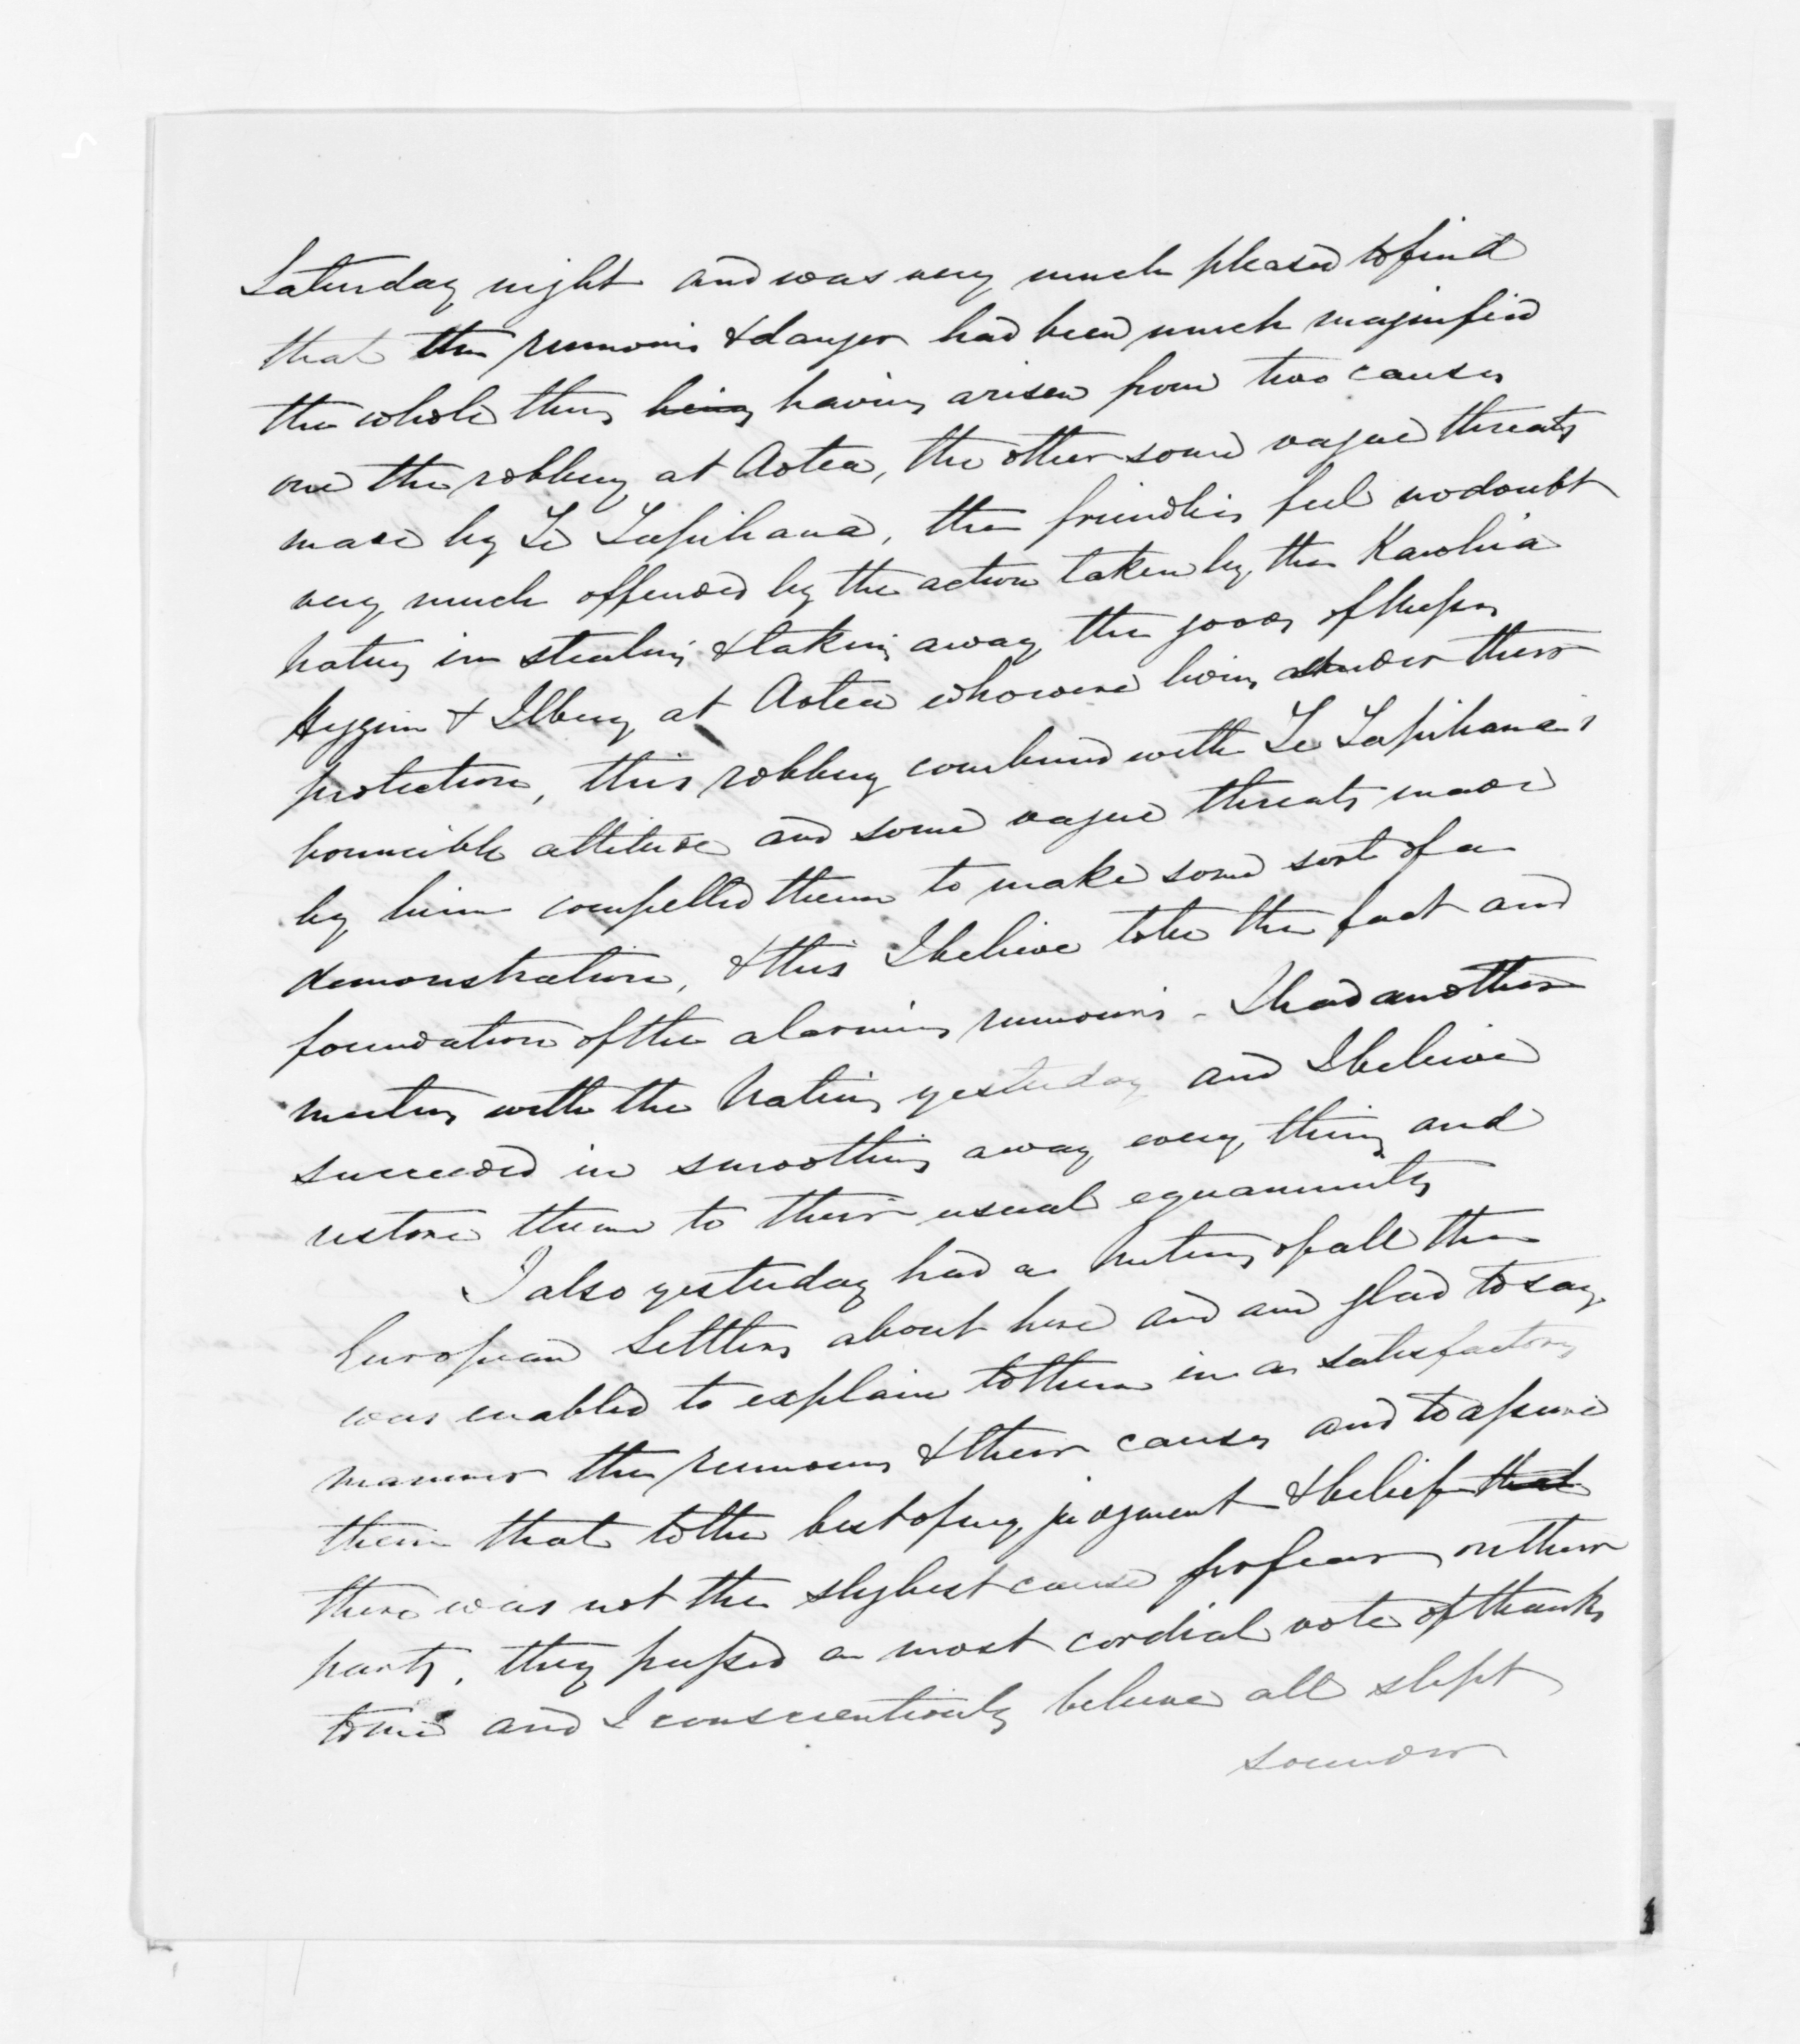 Saturday night and was very much pleased to find
that the rumours & danger had been much magnified
the whole thing being having arisen from two causes
one the robbery at Aotea, the other some vague threats
made by Te Tapihana, the friendlies feel no doubt
very much offended by the action taken by the Kawhia
natives in stealing & taking away the goods of Messrs
Hyggin & Ilbery at Aotea who were living under their
protection, this robbery combined with Te Tapihana's
bouncible attitude and some vague threats made
by him compelled them to make some sort of a
demonstration, & this I believe to be the fact and
foundation of the alarming rumours - I had another
meeting with the Natives yesterday and I believe
succeeded in smoothing away every thing and
restore them to their usual equanimity
I also yesterday had a meeting of all the
European Settlers about here and am glad to say
was enabled to explain to them in a satisfactory
manner the rumours & their causes and to assure
them that to the best of my judgment & belief that
there was not the slyhest cause for fear on their
part, they passed a most cordial vote of thanks
to me and I conscientiously believe all slept
sounder